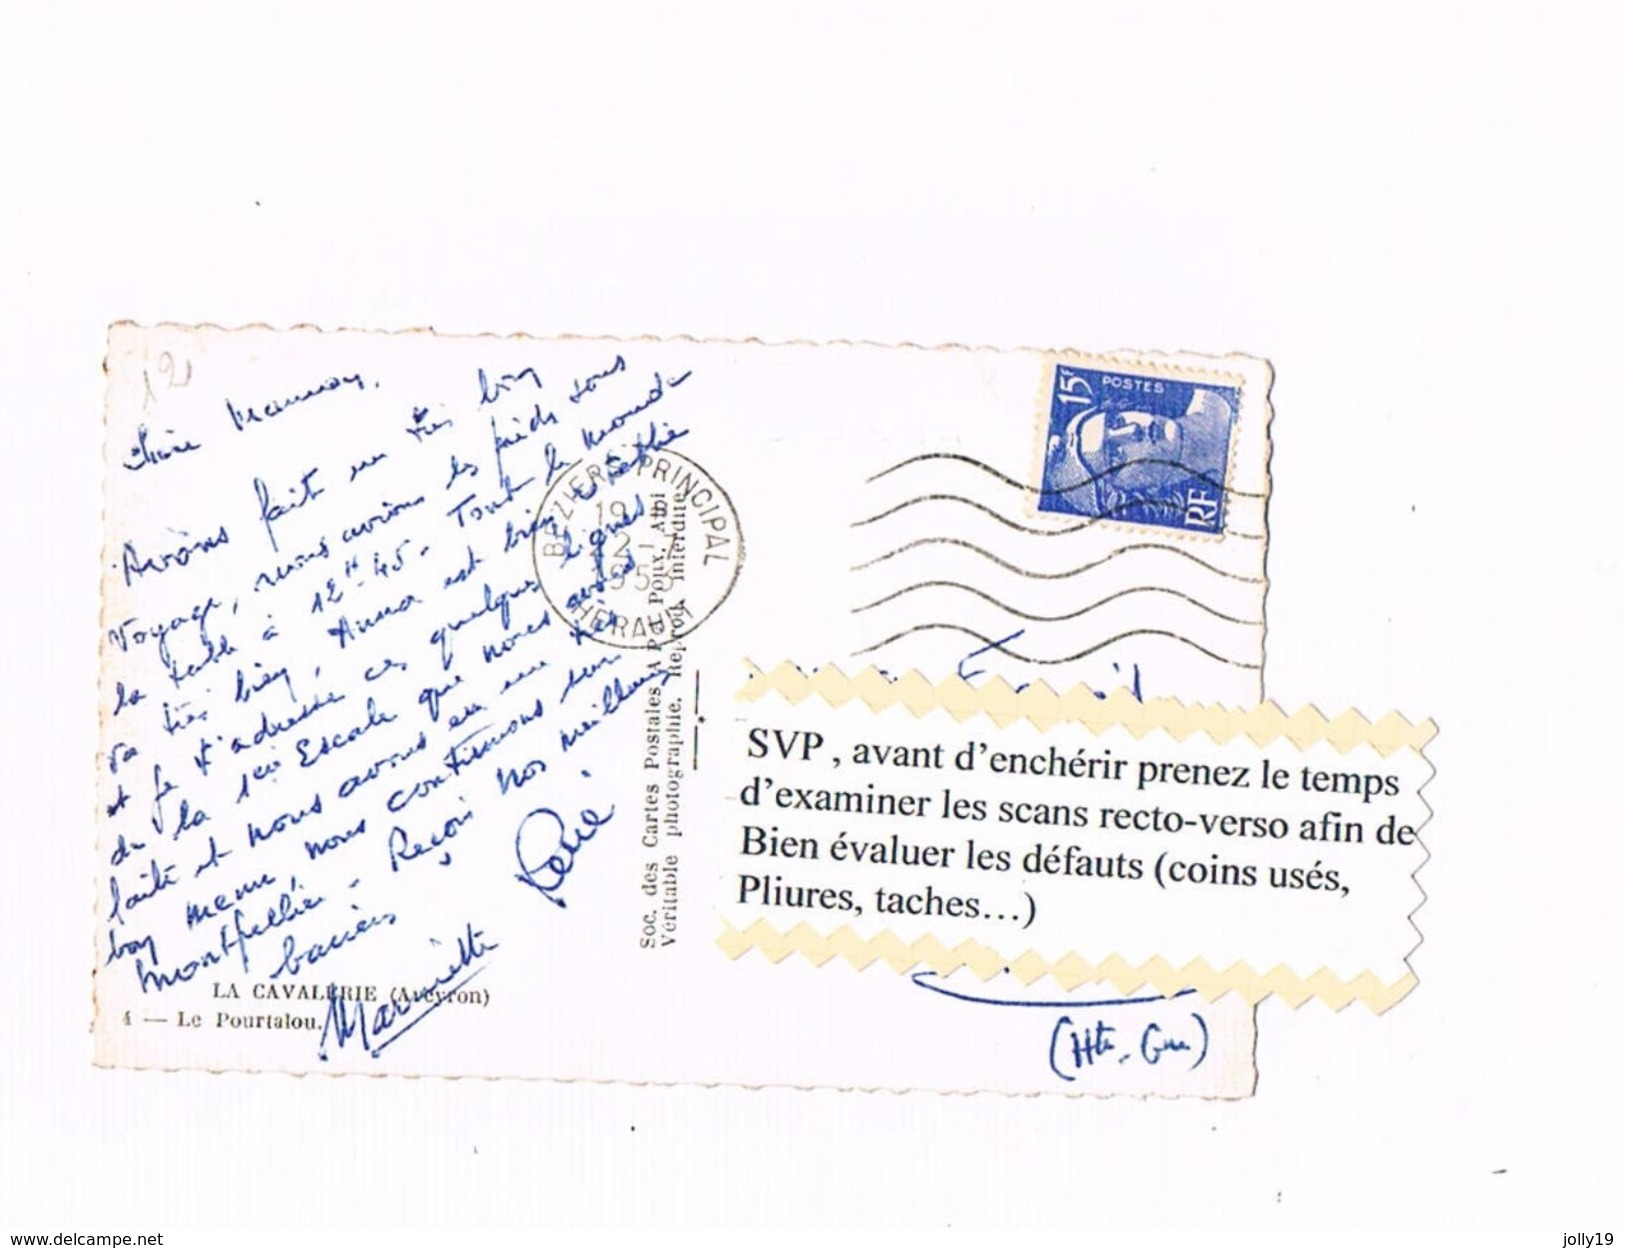 12
Chère Mamoy,
Avons fait un très boy
Voyage, nous avions les pieds sous
la table à 12H45. Tout le monde
va très bien, Anna est bien sage
et je t'adresse ces quelques lignes
de la 1ère Escale que nous avons
faite et nous avons eu un très
boy menu, nous continuons sur
Montpellier. Reçois nos meilleurs
baisers
René
Marinette
LA CAVALERIE (Aveyron)
4 — Le Pourtalou.
Soc. des Cartes Postales A P A Poux. Albi
Véritable photographie. Reprod. interdite
BEZIERS PRINCIPAL
19 H
22 - 7
1953
HERAULT
15F
POSTES
RF
SVP , avant d'enchérir prenez le temps
d'examiner les scans recto-verso afin de
Bien évaluer les défauts (coins usés,
Pliures, taches…)
(Hte. Gne)
www.delcampe.net
jolly19